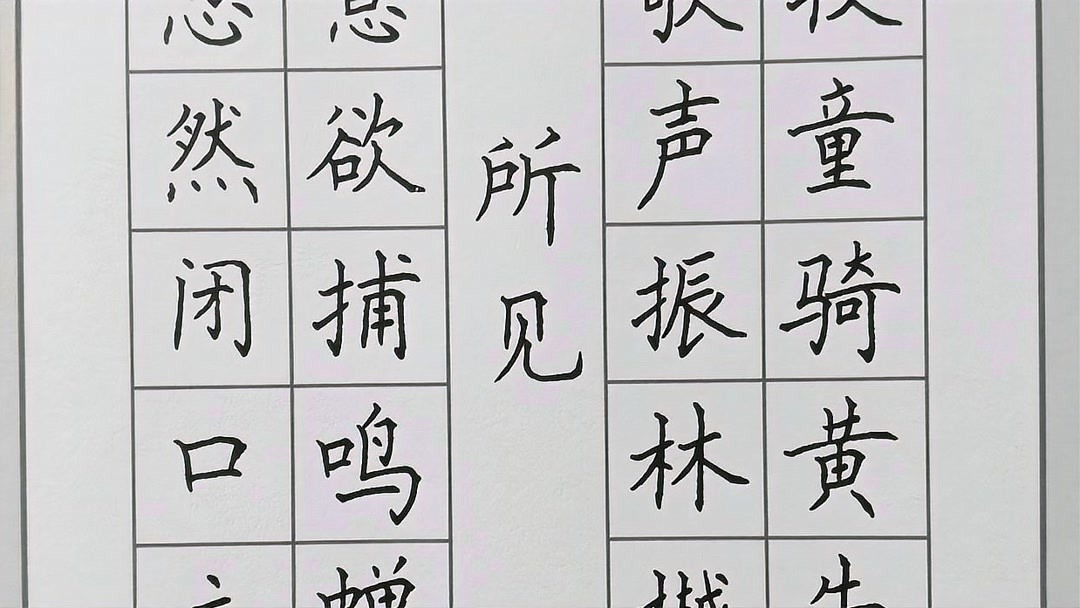 童骑黄
声振林
所见
欲捕鸣
然闭口